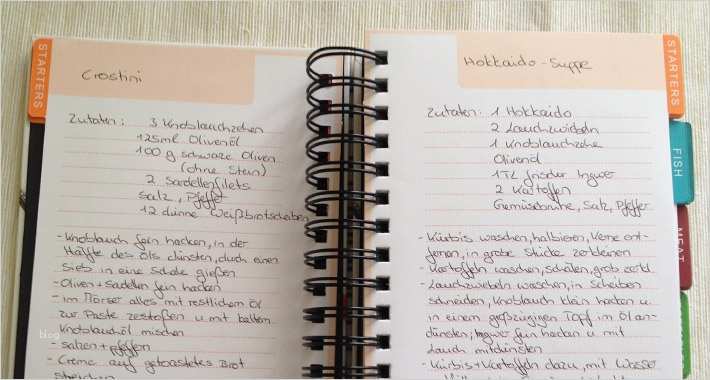 STARTERS
Crostini
Zutaten: 3 Knoblauchzehen
125ml Olivenöl
100 g schwarze Oliven
(ohne Stein)
2 Sardellenfilets
Salz, Pfeffer
12 dünne Weißbrotscheiben
- Knoblauch fein hacken, in der
Hälfte des Öls dünsten, durch einen
Sieb in eine Schale gießen
- Oliven + Sardellen fein hacken
- im Mörser alles mit restlichem Öl
zur Paste zerstoßen u. mit kaltem
Knoblauchöl mischen
- salzen + pfeffern
- Creme auf getoastetes Brot
streichen
Hokkaido - Suppe
Zutaten: 1 Hokkaido
2 Lauchzwiebeln
1 Knoblauchzehe
Olivenöl
1 TL frischer Ingwer
2 Kartoffeln
Gemüsebrühe, Salz, Pfeffer
- Kürbis waschen, halbieren, Kerne ent-
fernen, in grobe Stücke zerkleinern
- Kartoffeln waschen, schälen, grob zerkl.
- Lauchzwiebeln waschen, in Scheiben
schneiden, Knoblauch klein hacken u.
in einem großzügigen Topf im Öl an-
dünsten; Ingwer fein hacken u. mit
Lauch mitdünsten
- Kürbis + Kartoffeln dazu, mit Wasser
STARTERS
FISH
MEAT
blog